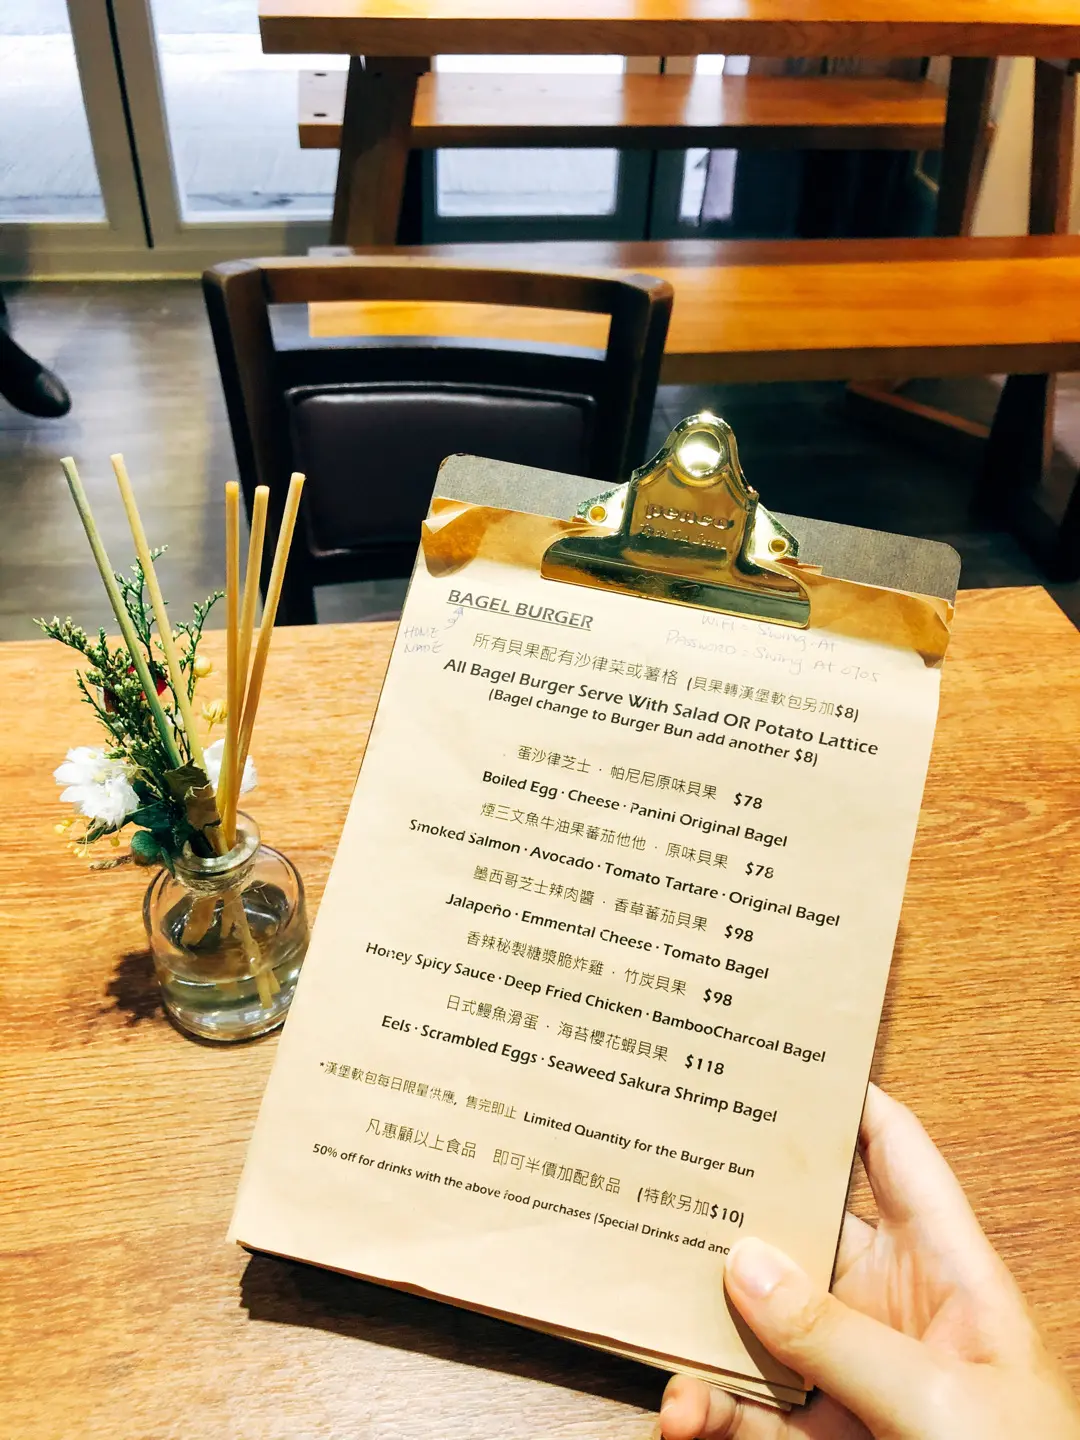 penco
BAGEL BURGER
HOME
MADE
WiFi = Swing-At
PASSWORD = Swing At 0705
所有貝果配有沙律菜或薯格 (貝果轉漢堡軟包另加$8)
All Bagel Burger Serve With Salad OR Potato Lattice
(Bagel change to Burger Bun add another $8)
蛋沙律芝士 · 帕尼尼原味貝果 $78
Boiled Egg · Cheese · Panini Original Bagel
煙三文魚牛油果蕃茄他他 · 原味貝果 $78
Smoked Salmon · Avocado · Tomato Tartare · Original Bagel
墨西哥芝士辣肉醬 · 香草蕃茄貝果 $98
Jalapeño · Emmental Cheese · Tomato Bagel
香辣秘製糖漿脆炸雞 · 竹炭貝果 $98
Honey Spicy Sauce · Deep Fried Chicken · BambooCharcoal Bagel
日式鰻魚滑蛋 · 海苔櫻花蝦貝果 $118
Eels · Scrambled Eggs · Seaweed Sakura Shrimp Bagel
*漢堡軟包每日限量供應, 售完即止 Limited Quantity for the Burger Bun
凡惠顧以上食品 即可半價加配飲品 (特飲另加$10)
50% off for drinks with the above food purchases (Special Drinks add